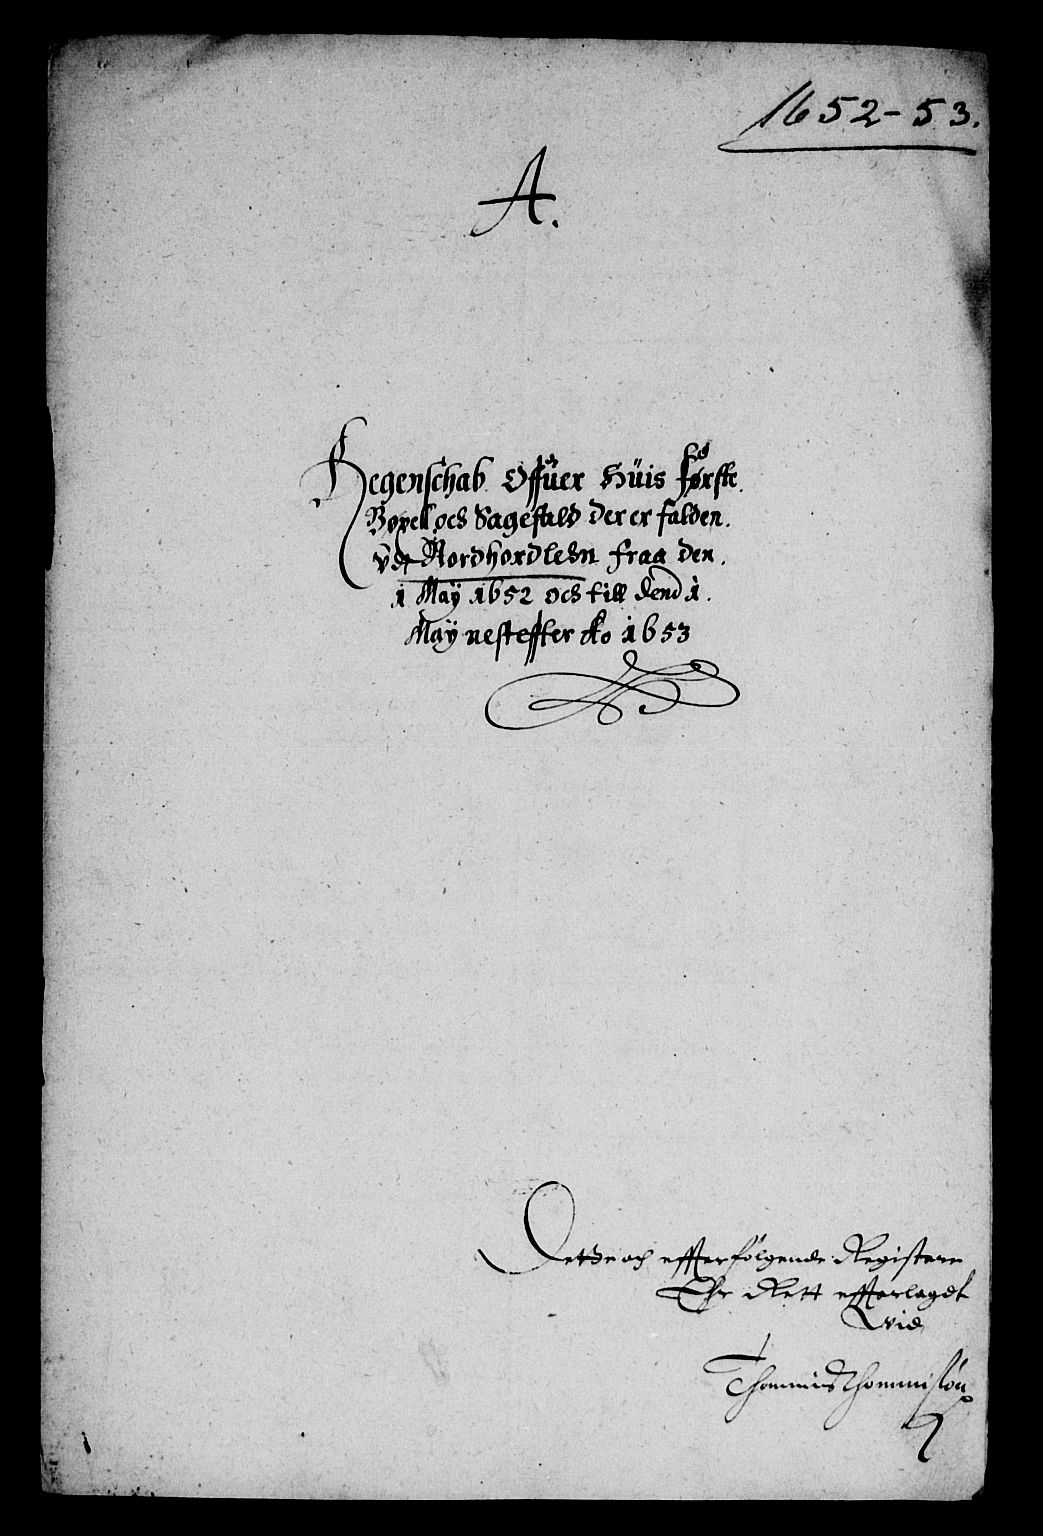 1652-53.
A.
Regenschab Offüer Hüis første
Bøxell och Sagefald der er falden.
vdt Nordhordlehn fraa den.
1 Maÿ 1652 och till dend 1.
Maÿ nesteffter Ao 1653
Dette och effterfølgende Registere
Ehr Rett effterlagdt
Thommis Thommisøn